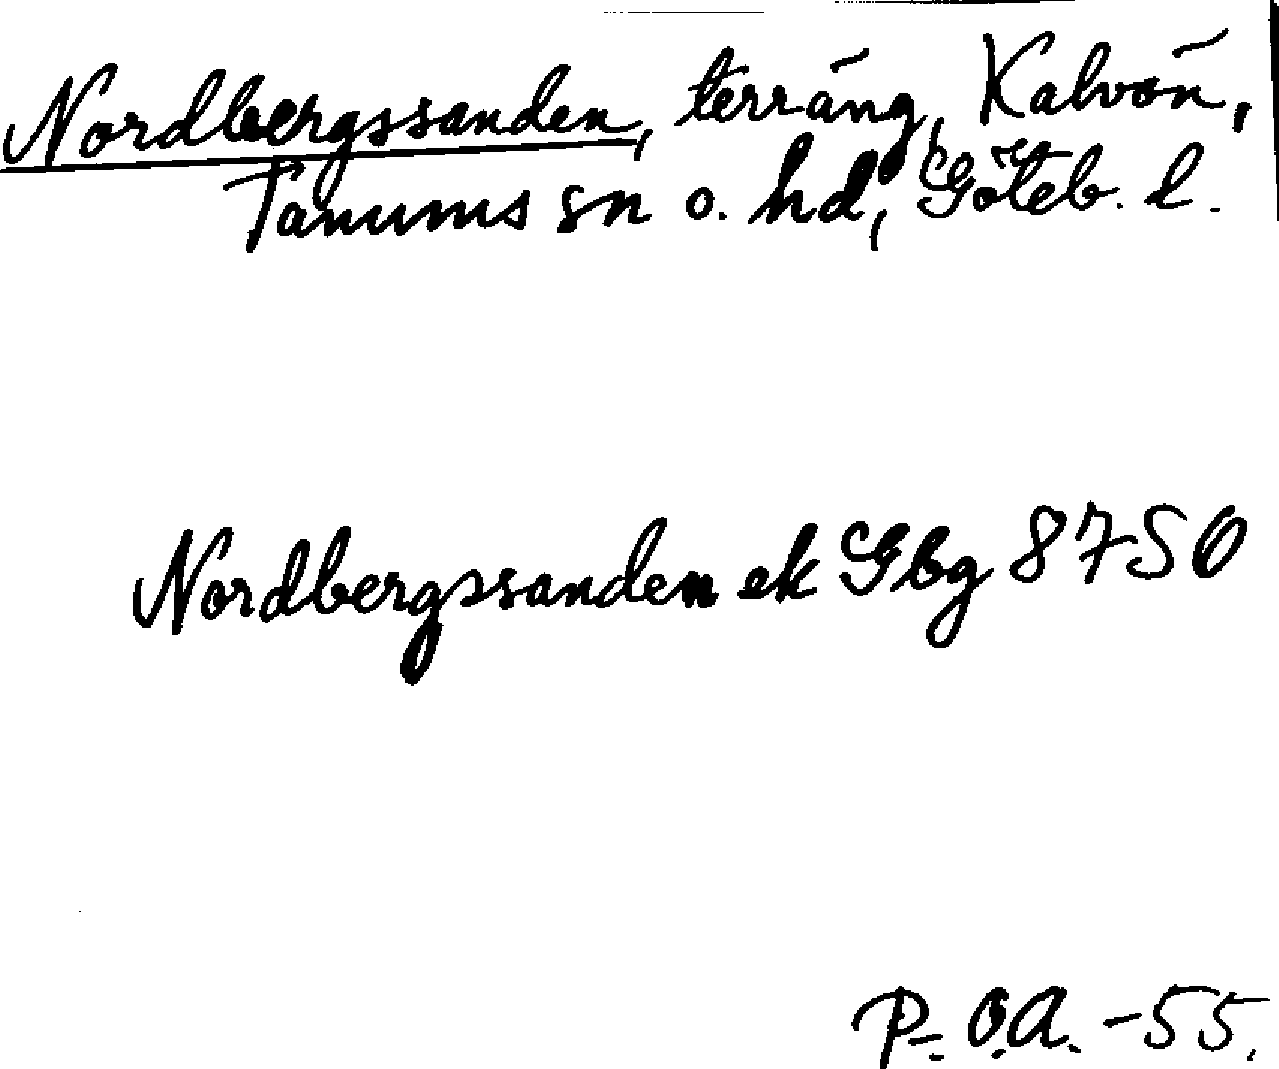 Nordbergssanden, terräng, Kalvön,
Tanums sn o. hd, Göteb. l.
Nordbergssanden ek Gbg 8750
P. O.A. -55.